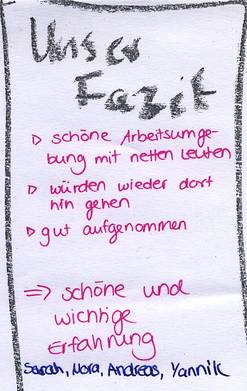 Unser
Fazit
▷ schöne Arbeitsumge-
bung mit netten Leuten
▷ würden wieder dort
hin gehen
▷ gut aufgenommen
⇒ schöne und
wichtige
Erfahrung
Sarah, Nora, Andreas, Yannik